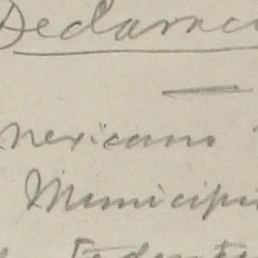 Declarac
mexicano
Municipi